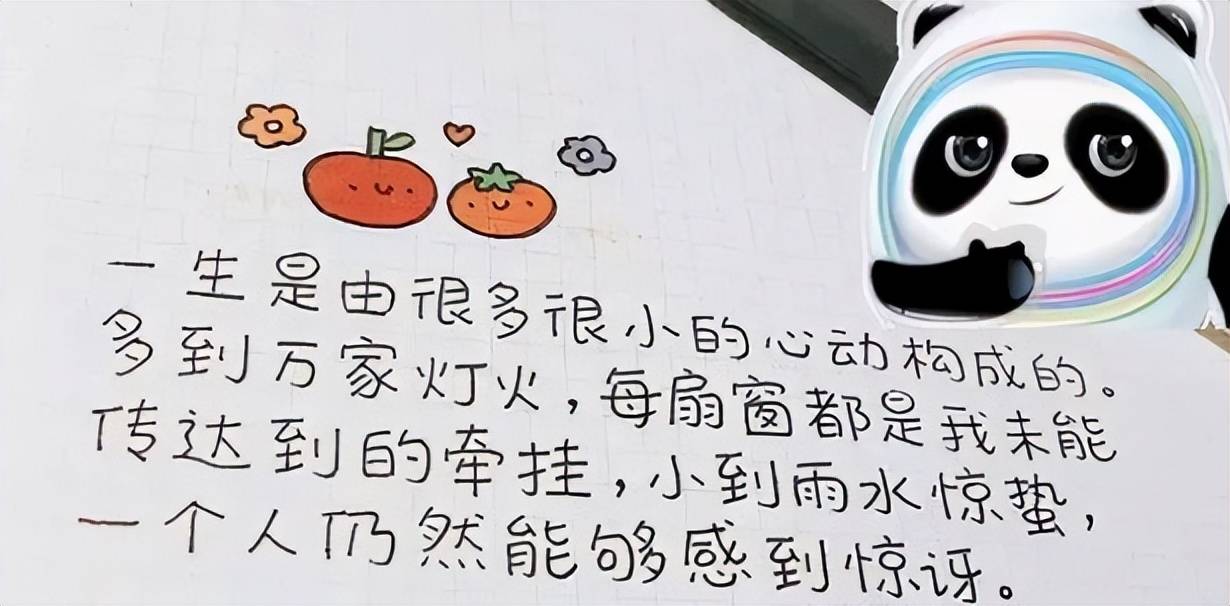 一生是由很多很小的心动构成的。
多到万家灯火,每扇窗都是我未能
传达到的牵挂,小到雨水惊蛰,
一个人仍然能够感到惊讶。